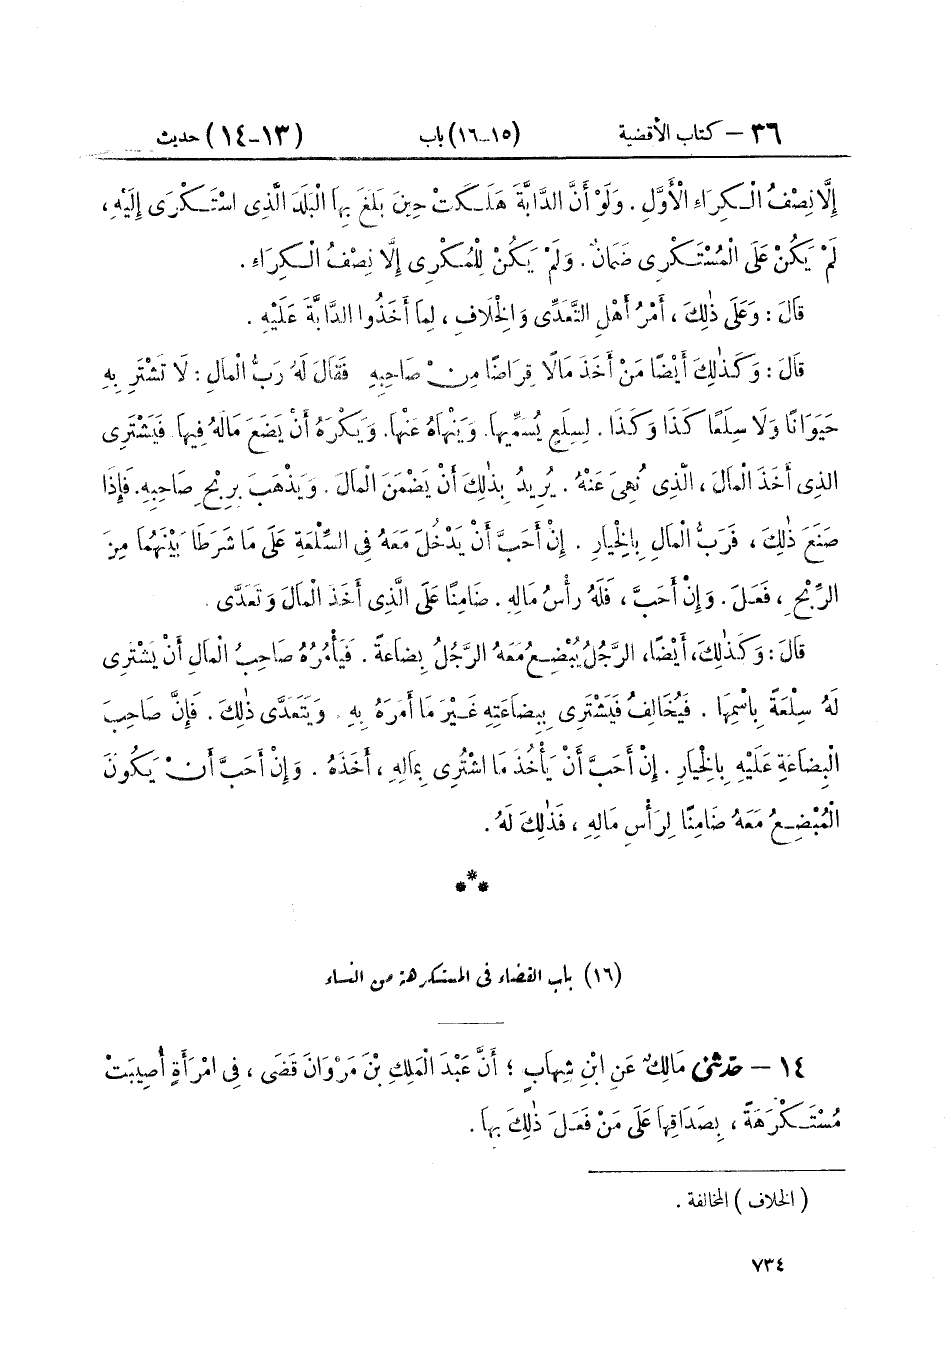 ٣٦ – كتاب الأقضية (١٥-١٦) باب (١٣-١٤) حديث
إِلَّا نِصْفُ الْكِرَاءِ الْأَوَّلِ . وَلَوْ أَنَّ الدَّابَّةَ هَلَكَتْ حِينَ بَلَغَ بِهَا الْبَلَدَ الَّذِى اسْتَكْرَى إِلَيْهِ ،
لَمْ يَكُنْ عَلَى الْمُسْتَكْرِى ضَمَانٌ . وَلَمْ يَكُنْ لِلْمُكْرِى إِلَّا نِصْفُ الْكِرَاءِ .
قَالَ : وَعَلَى ذٰلِكَ ، أَمْرُ أَهْلِ التَّعَدِّى وَالْخِلَافِ ، لِمَا أَخَذُوا الدَّابَّةَ عَلَيْهِ .
قَالَ : وَكَذٰلِكَ أَيْضًا مَنْ أَخَذَ مَالًا قِرَاضًا مِنْ صَاحِبِهِ فَقَالَ لَهُ رَبُّ الْمَالِ : لَا تَشْتَرِ بِهِ
حَيَوَانًا وَلَا سِلَعًا كَذَا وَكَذَا . لِسِلَعٍ يُسَمِّيهَا. وَيَنْهَاهُ عَنْهَا. وَيَكْرَهُ أَنْ يَضَعَ مَالَهُ فِيهَا. فَيَشْتَرِى
الذِى أَخَذَ الْمَالَ ، الَّذِى نُهِىَ عَنْهُ . يُرِيدُ بِذٰلِكَ أَنْ يَضْمَنَ الْمَالَ . وَيَذْهَبَ بِرِبْحِ صَاحِبِهِ. فَإِذَا
صَنَعَ ذٰلِكَ ، فَرَبُّ الْمَالِ بِالْخِيَارِ . إِنْ أَحَبَّ أَنْ يَدْخُلَ مَعَهُ فِى السِّلْعَةِ عَلَى مَا شَرَطَا بَيْنَهُمَا مِنَ
الرِّبْحِ ، فَعَلَ . وَإِنْ أَحَبَّ ، فَلَهُ رَأْسُ مَالِهِ . ضَامِنًا عَلَى الَّذِى أَخَذَ الْمَالَ وَتَعَدَّى .
قَالَ : وَكَذٰلِكَ، أَيْضًا، الرَّجُلُ يُبْضِعُ مَعَهُ الرَّجُلُ بِضَاعَةً . فَيَأْمُرُهُ صَاحِبُ الْمَالِ أَنْ يَشْتَرِى
لَهُ سِلْعَةً بِاسْمِهَا . فَيُخَالِفُ فَيَشْتَرِى بِبِضَاعَتِهِ غَيْرَ مَا أَمَرَهُ بِهِ . وَيَتَعَدَّى ذٰلِكَ . فَإِنَّ صَاحِبَ
الْبِضَاعَةِ عَلَيْهِ بِالْخِيَارِ . إِنْ أَحَبَّ أَنْ يَأْخُذَ مَا اشْتُرِىَ بِمَالِهِ ، أَخَذَهُ . وَإِنْ أَحَبَّ أَنْ يَكُونَ
الْمُبْضِعُ مَعَهُ ضَامِنًا لِرَأْسِ مَالِهِ ، فَذٰلِكَ لَهُ .
***
(١٦) باب القضاء فى المستكرهة من النساء
١٤ – حدثنى مَالِكٌ عَنِ ابْنِ شِهَابٍ ؛ أَنَّ عَبْدَ الْمَلِكِ بْنَ مَرْوَانَ قَضَى ، فِى امْرَأَةٍ أُصِيبَتْ
مُسْتَكْرَهَةً ، بِصَدَاقِهَا عَلَى مَنْ فَعَلَ ذٰلِكَ بِهَا .
( الخلاف ) المخالفة .
٧٣٤